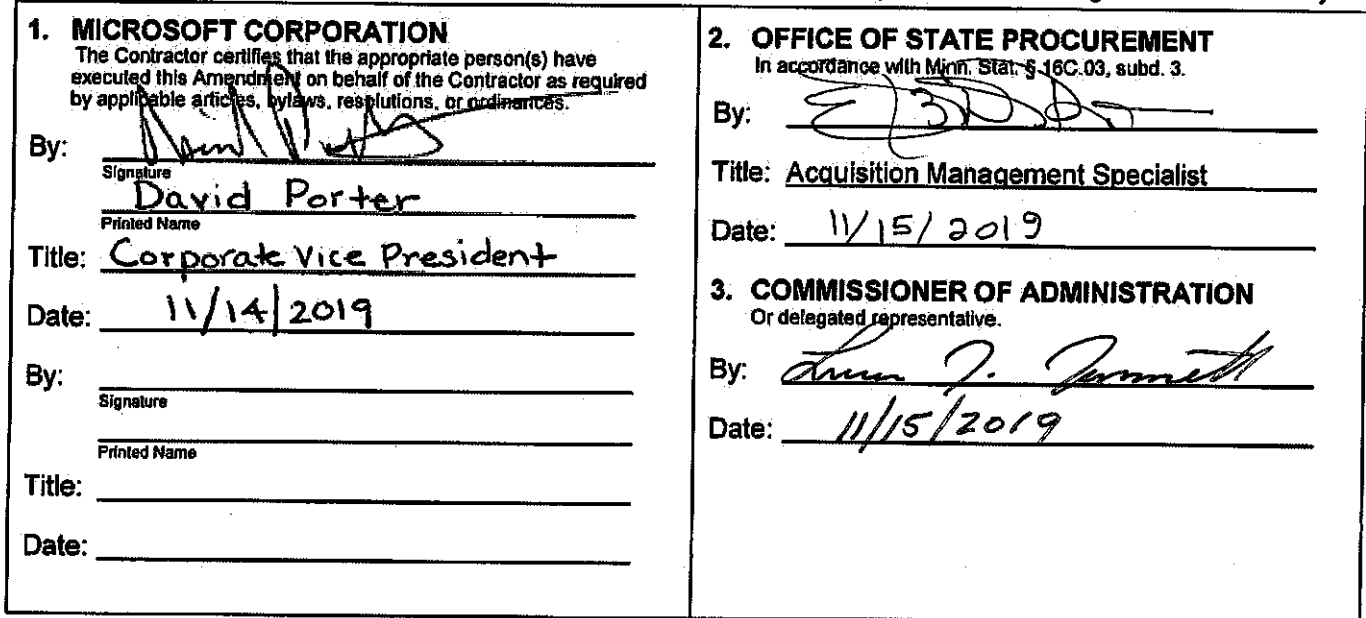 1. MICROSOFT CORPORATION
The Contractor certifies that the appropriate person(s) have
executed this Amendment on behalf of the Contractor as required
by applicable articles, bylaws, resolutions, or ordinances.
By:
Signature
David Porter
Printed Name
Title: Corporate Vice President
Date: 11/14/2019
By:
Signature
Printed Name
Title:
Date:
2. OFFICE OF STATE PROCUREMENT
In accordance with Minn. Stat. § 16C.03, subd. 3.
By:
Title: Acquisition Management Specialist
Date: 11/15/2019
3. COMMISSIONER OF ADMINISTRATION
Or delegated representative.
By:
Date: 11/15/2019